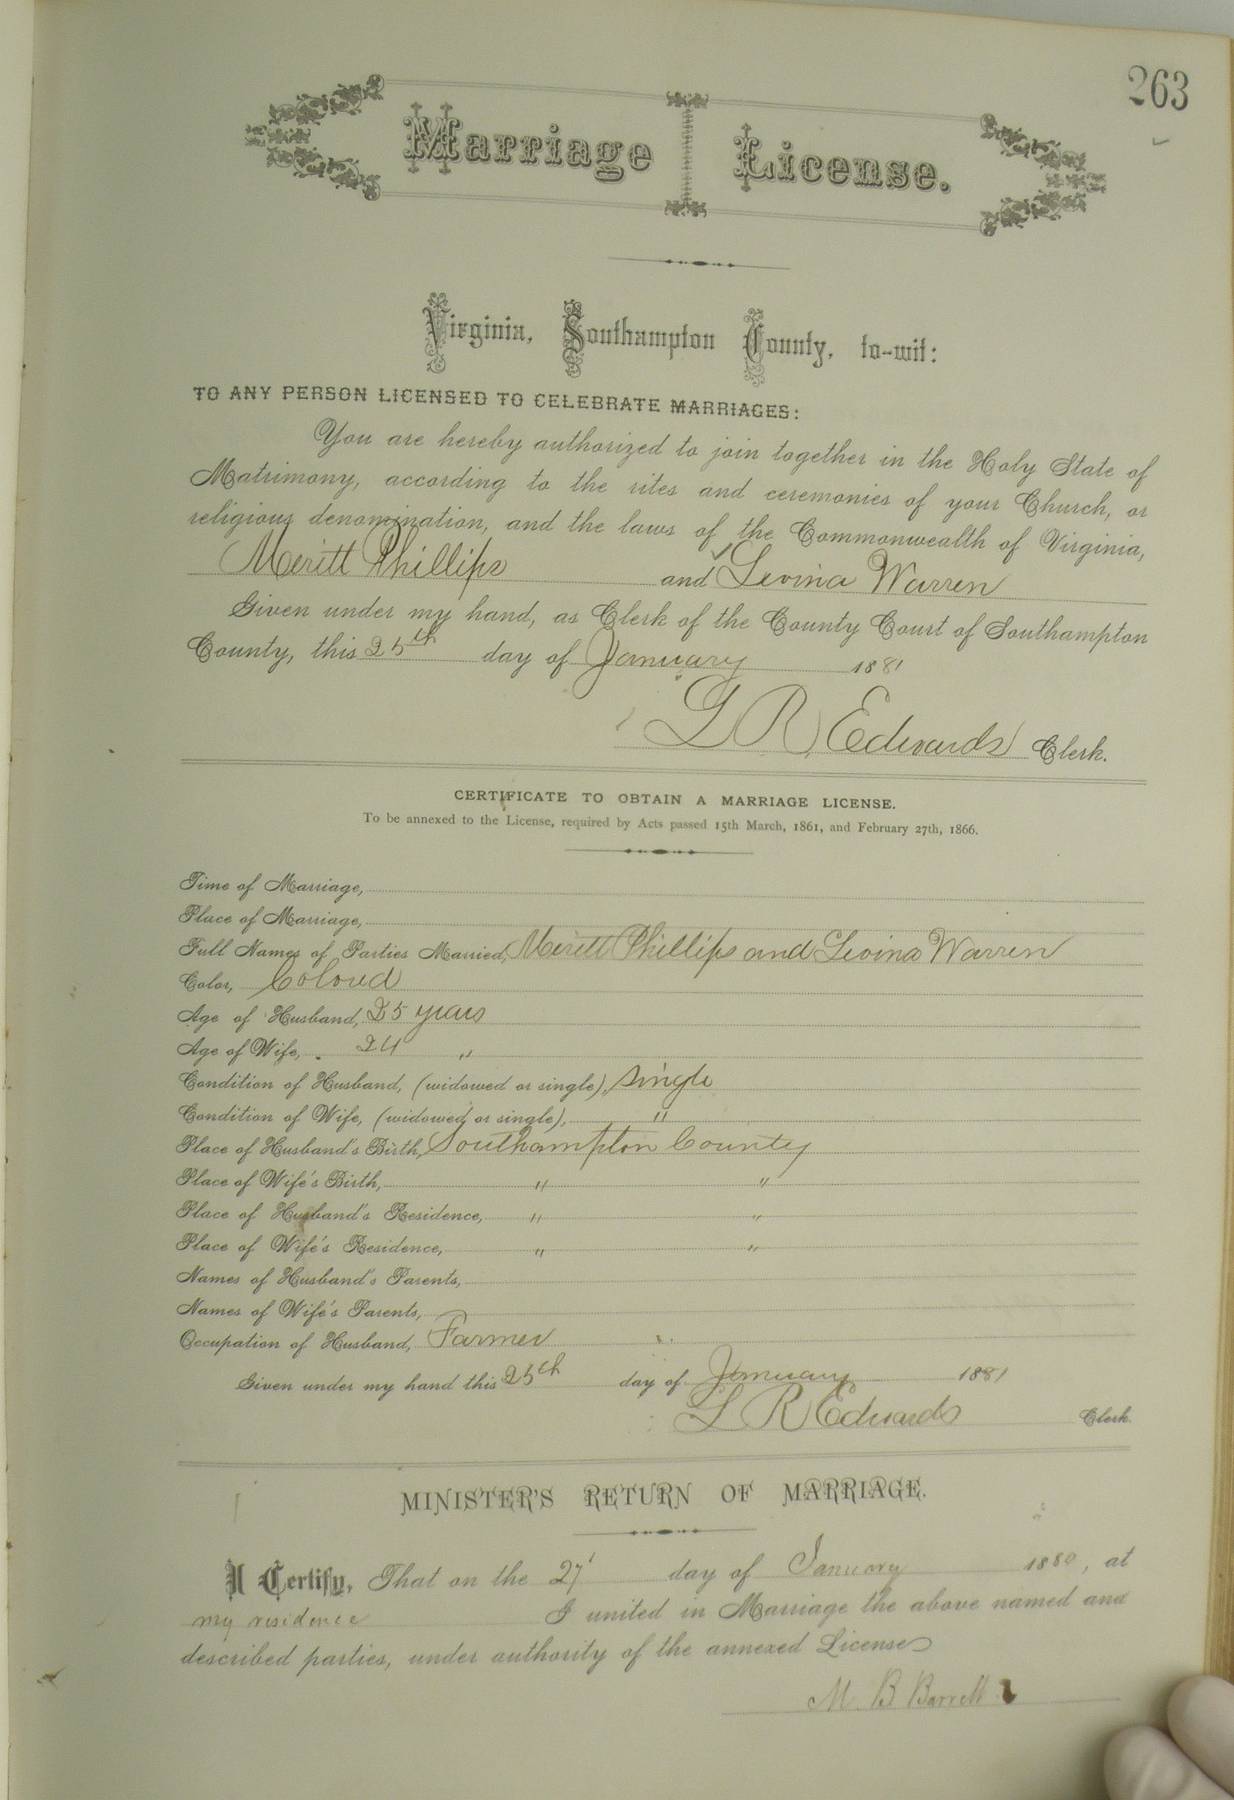 263
Marriage License.
Virginia, Southampton County, to-wit:
TO ANY PERSON LICENSED TO CELEBRATE MARRIAGES:
You are hereby authorized to join together in the Holy State of
Matrimony, according to the rites and ceremonies of your Church, or
religious denomination, and the laws of the Commonwealth of Virginia,
Meritt Phillips and Levina Warren
Given under my hand, as Clerk of the County Court of Southampton
County, this 25th day of January 1881
L R Edwards Clerk.
CERTIFICATE TO OBTAIN A MARRIAGE LICENSE.
To be annexed to the License, required by Acts passed 15th March, 1861, and February 27th, 1866.
Time of Marriage,
Place of Marriage,
Full Names of Parties Married, Meritt Phillips and Levina Warren
Color, Colored
Age of Husband, 25 years
Age of Wife, 24 "
Condition of Husband, (widowed or single), single
Condition of Wife, (widowed or single), "
Place of Husband's Birth, Southampton County
Place of Wife's Birth, " "
Place of Husband's Residence, " "
Place of Wife's Residence, " "
Names of Husband's Parents,
Names of Wife's Parents,
Occupation of Husband, Farmer
Given under my hand this 25th day of January 1881
L R Edwards Clerk.
MINISTER'S RETURN OF MARRIAGE.
I Certify, That on the 27 day of January 1880, at
my residence I united in Marriage the above named and
described parties, under authority of the annexed License
M. B. Barrett